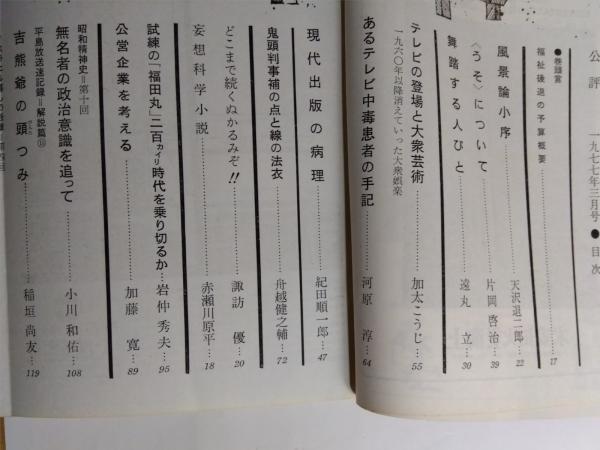 公評 一九七七年三月号●目次
●巻頭言
福祉後退の予算概要……17
風景論小序……天沢退二郎…22
〈うそ〉について……片岡啓治…39
舞踏する人びと……遠丸立…30
テレビの登場と大衆芸術……加太こうじ…55
一九六〇年以降消えていった大衆娯楽
あるテレビ中毒患者の手記……河原淳…64
現代出版の病理……紀田順一郎…47
鬼頭判事補の点と線の法衣……舟越健之輔…72
どこまで続くぬかるみぞ!!……諏訪優…20
妄想科学小説……赤瀬川原平…18
試練の「福田丸」二百カイリ時代を乗り切るか…岩仲秀夫…95
公営企業を考える……加藤寛…89
昭和精神史=第十回
無名者の政治意識を追って……小川和佑…108
平島放送速記録=解説篇⑩
吉熊爺の頭つみ……稲垣尚友…119